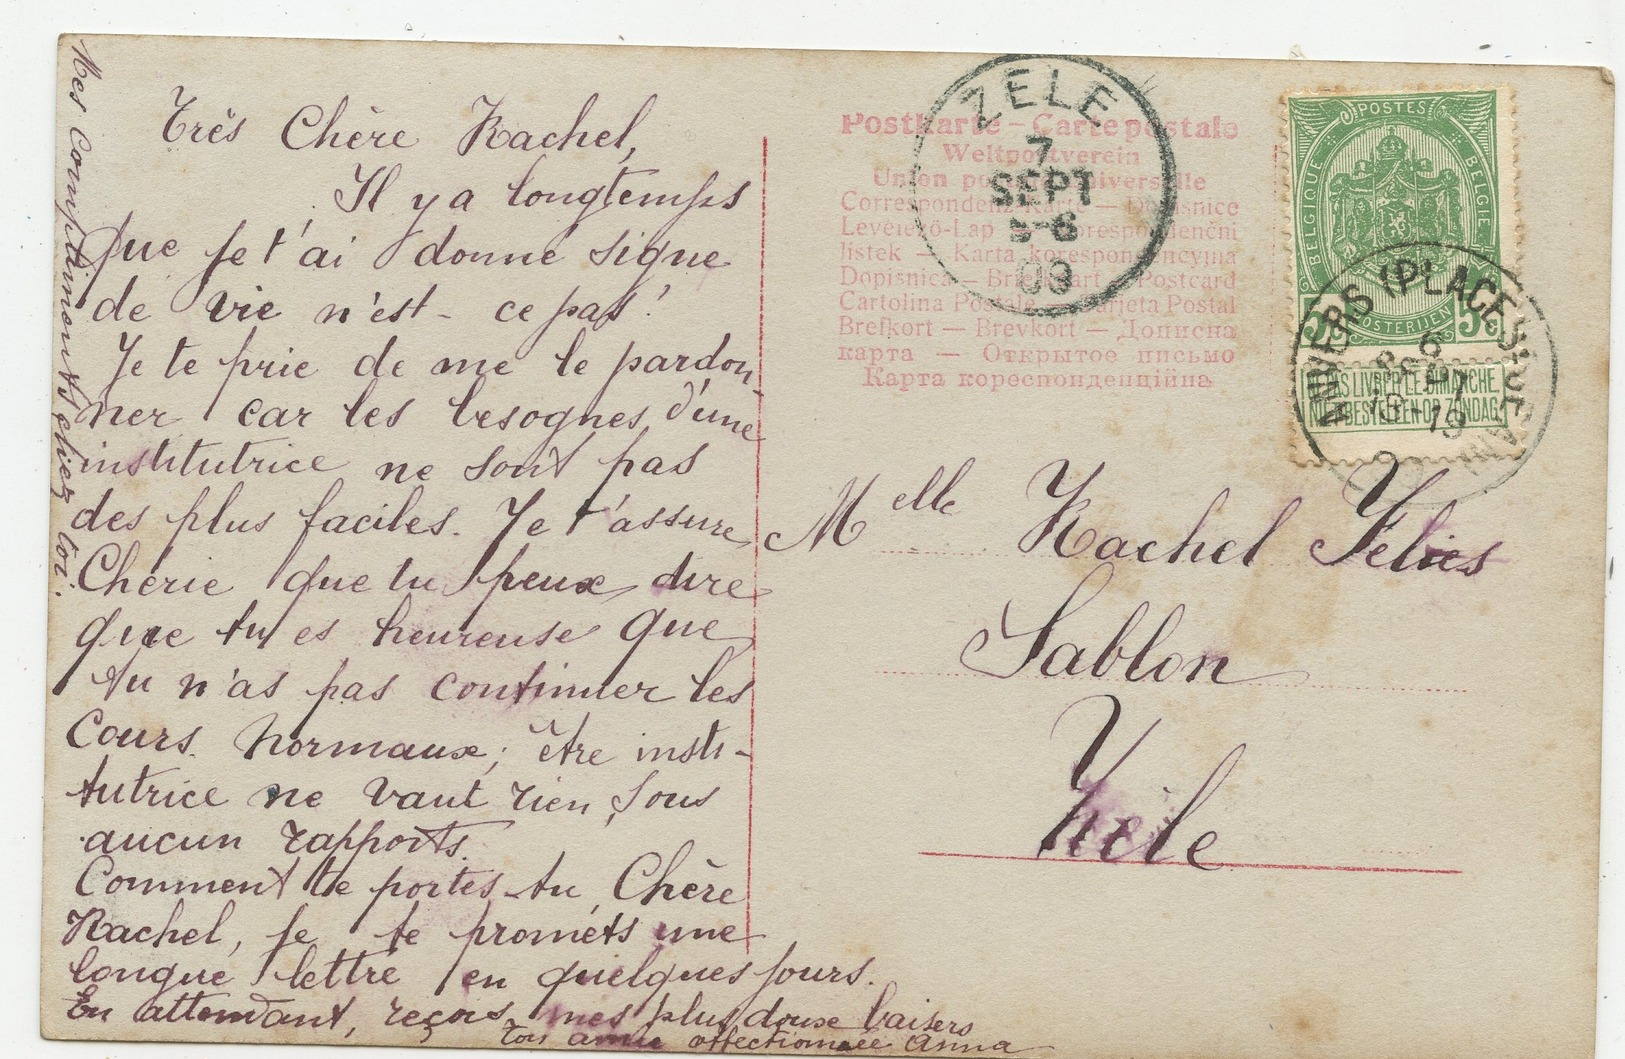 Très Chère Rachel,
Il y a longtemps
que je t'ai donné signe
de vie n'est-ce pas!
Je te prie de me le pardon-
ner car les besognes d'une
institutrice ne sont pas
des plus faciles. Je t'assure,
Chérie que tu peux dire
que tu es heureuse que
tu n'as pas continuer les
Cours normaux; être insti-
tutrice ne vaut rien, sous
aucun rapports.
Comment te portes-tu, Chère
Rachel, je te promèts une
longue lettre en quelques jours.
En attendant, reçois mes plus doux baisers
Ton amie affectionnée Anna
Mes compliments chez toi.
Postkarte – Carte postale
Weltpostverein
Union postale universelle
Correspondenz-Karte — Dopisnice
Levelező-Lap — Korespondenční
lístek — Karta korespondencyjna
Dopisnica — Briefkaart — Postcard
Cartolina Postale — Tarjeta Postal
Brefkort — Brevkort — Дописна
карта — Открытое письмо
Карта кореспонденційна
ZELE
7
SEPT
5-6
09
POSTES
BELGIQUE
BELGIE
POSTERIJEN
5c 5c
NE PAS LIVRER LE DIMANCHE
NIET BESTELLEN OP ZONDAG
ANVERS (PLACE
6
SEPT
18-19
Melle Rachel Felies
Sablon
Zèle